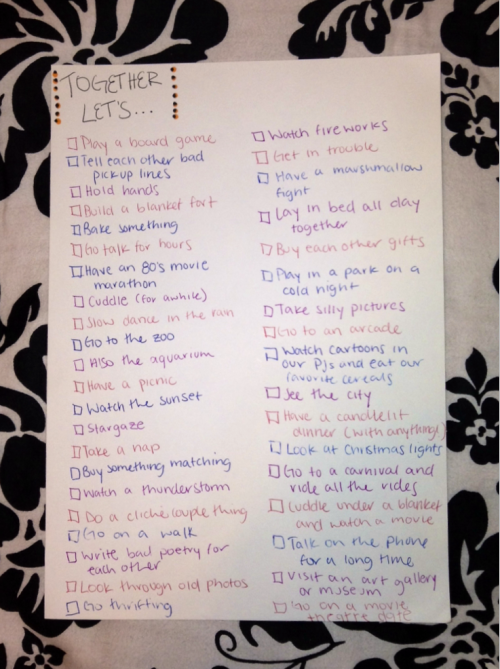 TOGETHER
LET'S...
Play a board game
Tell each other bad
pickup lines
Hold hands
Build a blanket fort
Bake something
Go talk for hours
Have an 80's movie
marathon
Cuddle (for awhile)
Slow dance in the rain
Go to the zoo
Also the aquarium
Have a picnic
Watch the sunset
Stargaze
Take a nap
Buy something matching
Watch a thunderstorm
Do a cliché couple thing
Go on a walk
Write bad poetry for
each other
Look through old photos
Go thrifting
Watch fireworks
Get in trouble
Have a marshmallow
fight
Lay in bed all day
together
Buy each other gifts
Play in a park on a
cold night
Take silly pictures
Go to an arcade
Watch cartoons in
our PJs and eat our
favorite cereals
See the city
Have a candlelit
dinner (with anything!)
Look at Christmas lights
Go to a carnival and
ride all the rides
Cuddle under a blanket
and watch a movie
Talk on the phone
for a long time
Visit an art gallery
or museum
Go on a movie
theatre date